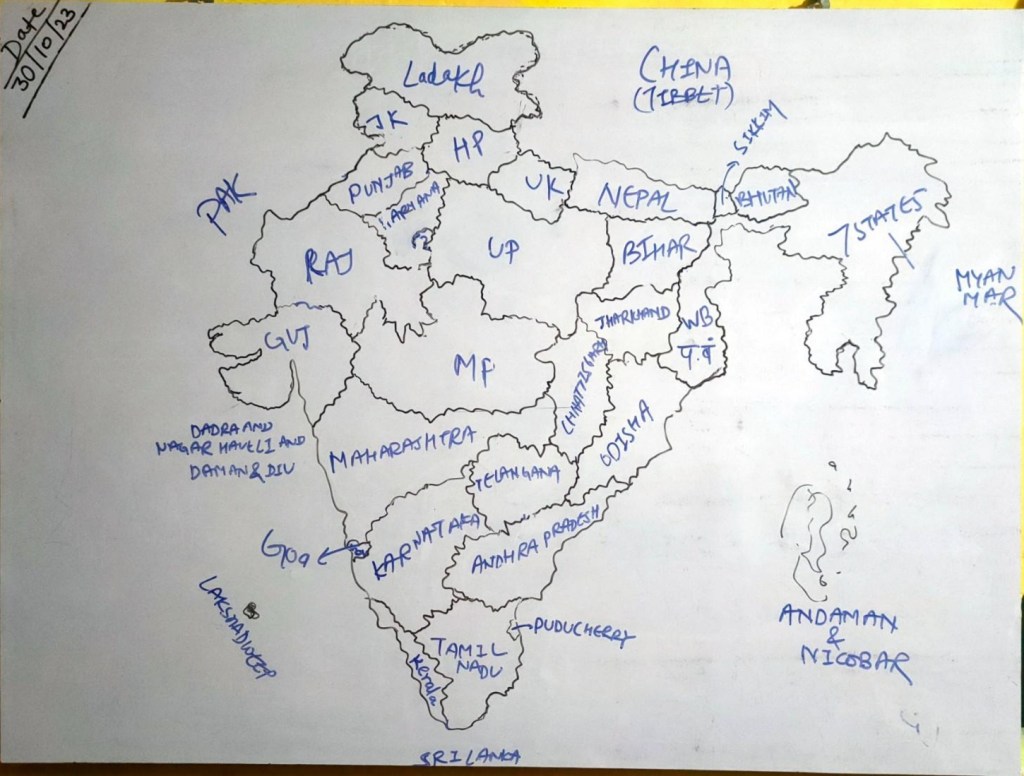 Date
30/10/23
Ladakh
CHINA
(TIBET)
JK
HP
SIKKIM
PUNJAB
HARYANA
UK
NEPAL
BHUTAN
7 STATES
PAK
RAJ
UP
BIHAR
MYAN
MAR
GUJ
JHARKHAND
WB
प.बं
MP
CHHATTISGARH
DADRA AND
NAGAR HAVELI AND
DAMAN & DIU
MAHARASHTRA
ODISHA
TELANGANA
Goa
KARNATAKA
ANDHRA PRADESH
LAKSHADWEEP
ANDAMAN
&
NICOBAR
PUDUCHERRY
TAMIL
NADU
Kerala
SRI LANKA